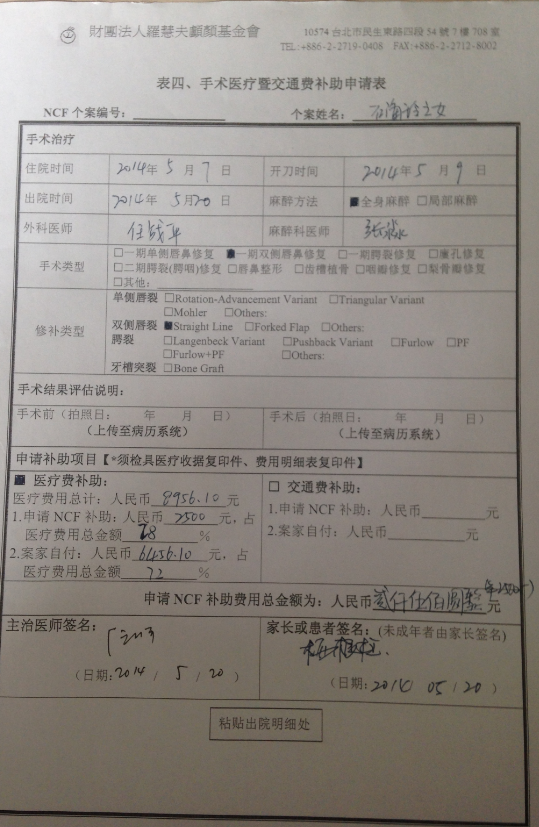 財團法人羅慧夫顱顏基金會
10574 台北市民生東路四段 54 號 7 樓 708 室
TEL:+886-2-2719-0408 FAX:+886-2-2712-8002
表四、手术医疗暨交通费补助申请表
NCF 个案编号： 个案姓名： 之女
手术治疗
住院时间 2014年 5 月 7 日 开刀时间 2014年 5 月 9 日
出院时间 2014年 5月20 日 麻醉方法 ■全身麻醉 □局部麻醉
外科医师 任战平 麻醉科医师
手术类型 □一期单侧唇鼻修复 ■一期双侧唇鼻修复 □一期腭裂修复 □瘘孔修复
□二期腭裂(腭咽)修复 □唇鼻整形 □齿槽植骨 □咽瓣修复 □梨骨瓣修复
□其他：
修补类型 单侧唇裂 □Rotation-Advancement Variant □Triangular Variant
□Mohler □Others:
双侧唇裂 ■Straight Line □Forked Flap □Others:
腭裂 □Langenbeck Variant □Pushback Variant □Furlow □PF
□Furlow+PF □Others:
牙槽突裂 □Bone Graft
手术结果评估说明：
手术前（拍照日： 年 月 日） 手术后（拍照日： 年 月 日）
（上传至病历系统） （上传至病历系统）
申请补助项目【*须检具医疗收据复印件、费用明细表复印件】
■ 医疗费补助： □ 交通费补助：
医疗费用总计：人民币 8956.10 元
1.申请 NCF 补助：人民币 2500 元，占 1.申请 NCF 补助：人民币 元
医疗费用总金额 28 %
2.案家自付：人民币 6456.10 元，占 2.案家自付：人民币 元
医疗费用总金额 72 %
申请 NCF 补助费用总金额为：人民币 贰仟伍佰圆整 元
主治医师签名： 家长或患者签名：(未成年者由家长签名)
（日期：2014 / 5 / 20 ） （日期：2014 / 05 / 20 ）
粘贴出院明细处